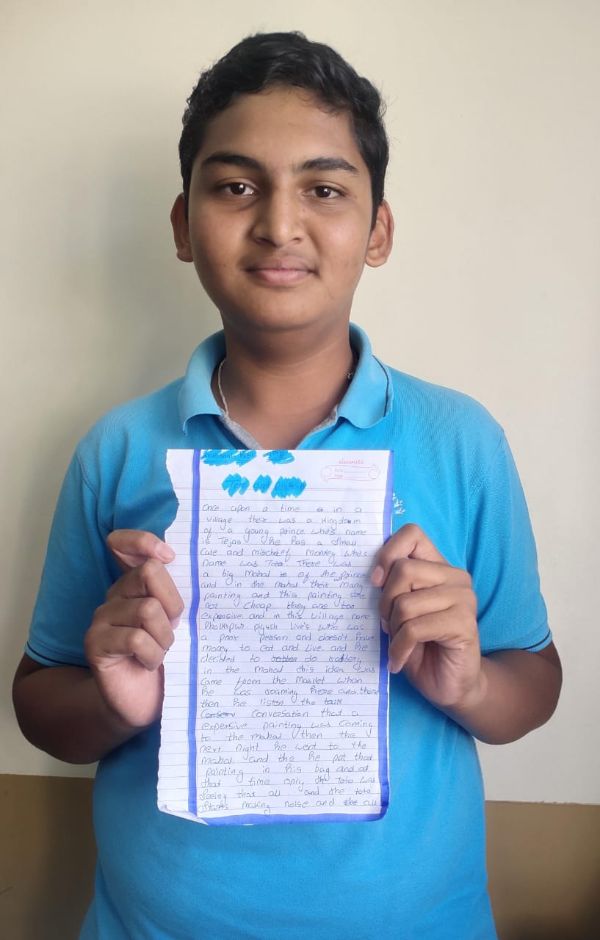 Once upon a time is in a
village there was a Kingdom
of a young prince who's name
is Tejas. He has a small
cute and mischief monkey who's
name was Toto. There was
a big Mahal is of the prince
and in the mahal there many
painting and this painting
not cheap they are too
expensive and in this village name
piyush live's who was
a poor person and doesn't have
money to eat and live and he
decided to do
in the Mahal this idea was
came from the Market when
he was roaming here and there
then he listen the talk
conversation that a
expensive painting was coming
to the mahal then the
next night he went to the
Mahal and the he put that
painting in his bag and at
that time only the Toto was
seeing that all and the toto
starts making noise and the all